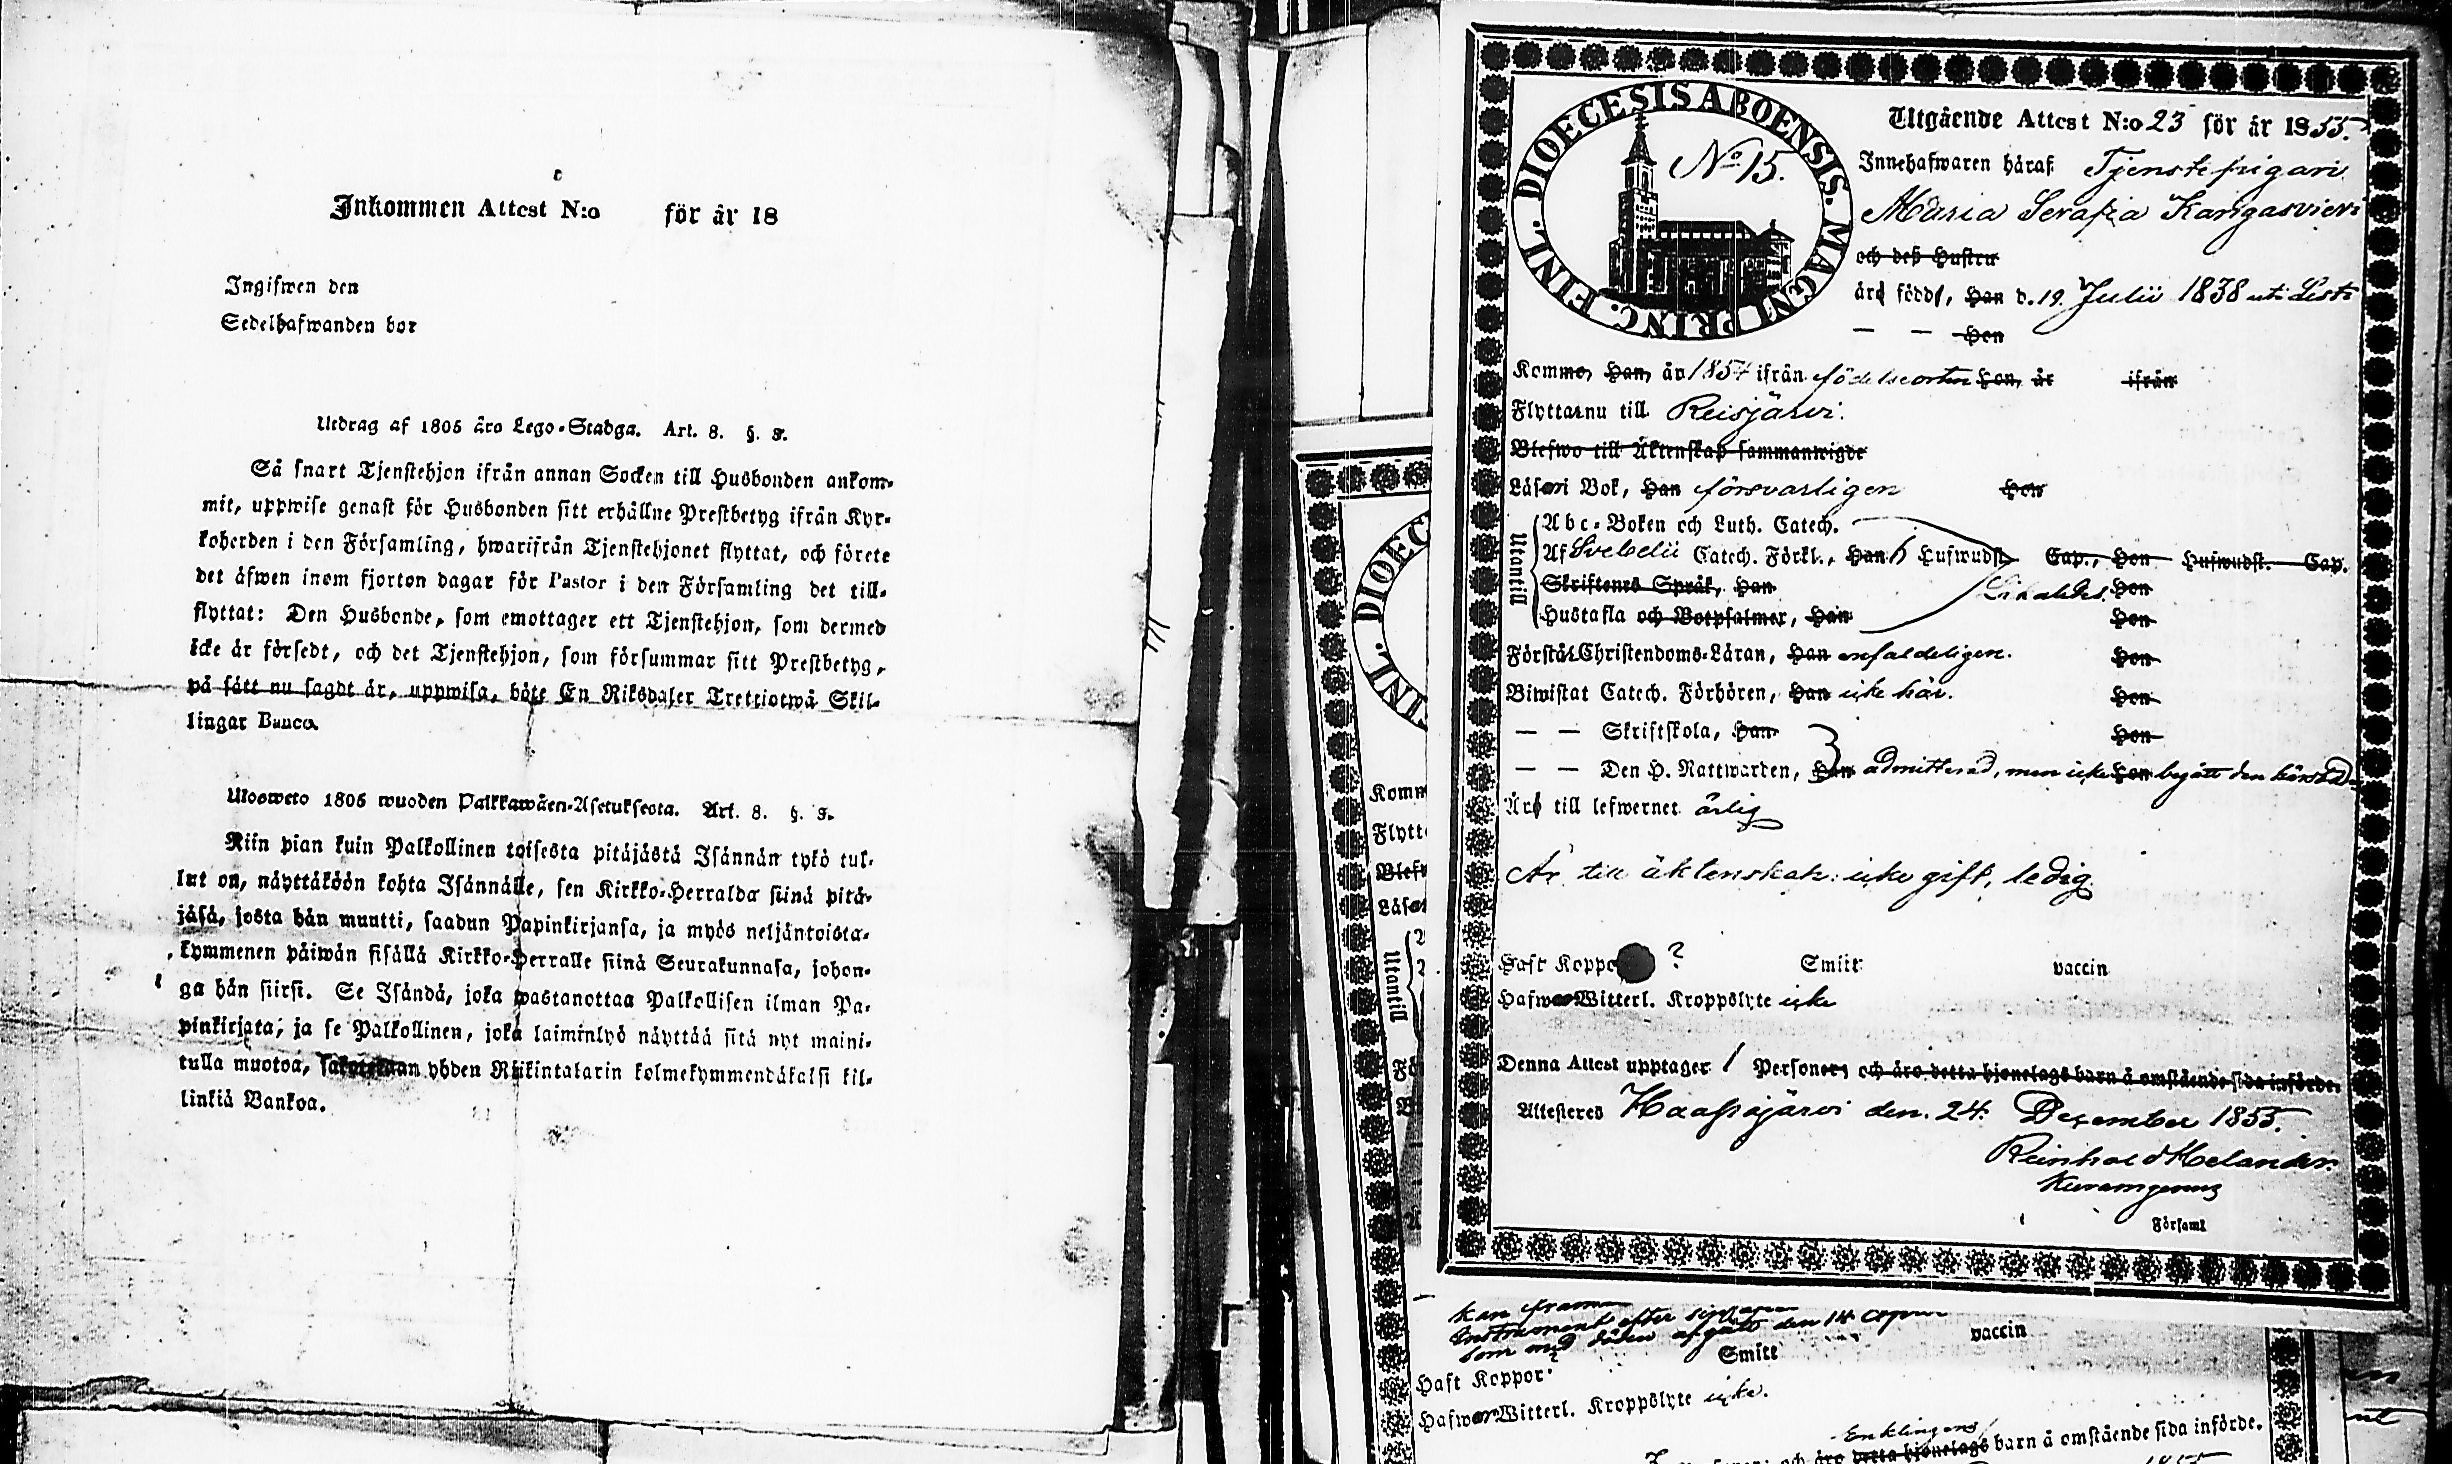 Inkommen Attest N:o för år 18
Ingifwen den
Sedelhafwanden bor
Utdrag af 1805 års Lego-Stadga. Art. 8. §. 3.
Så snart Tjenstehjon ifrån annan Socken till Husbonden ankom-
mit, uppwise genast för Husbonden sitt erhållne Prestbetyg ifrån Kyr-
koherden i den Församling, hwarifrån Tjenstehjonet flyttat, och förete
det äfwen inom fjorton dagar för Pastor i den Församling det till-
flyttat: Den Husbonde, som emottager ett Tjenstehjon, som dermed
icke är försedt, och det Tjenstehjon, som försummar sitt Prestbetyg,
på sätt nu sagdt är, uppwisa, böte En Riksdaler Trettiotwå Skil-
lingar Banco.
Ulosweto 1805 wuoden Palkkawäen-Asetuksesta. Art. 8. §. 3.
Niin pian kuin Palkollinen toisesta pitäjästä Isännän tykö tul-
lut on, näyttäköön kohta Isännälle, sen Kirkko-Herralda siinä pitä-
jäsä, josta hän muutti, saadun Papinkirjansa, ja myös neljäntoista-
kymmenen päiwän sisällä Kirkko-Herralle siinä Seurakunnasa, johon-
ga hän siirsi. Se Isändä, joka wastanottaa Palkollisen ilman Pa-
pinkirjata, ja se Palkollinen, joka laiminlyö näyttää sitä nyt maini-
tulla muotoa, sakoitetaan yhden Riikintalarin kolmekymmendäkaksi kil-
linkiä Bankoa.
DIOECESIS ABOENSIS. MAGNI PRINC. FINL.
No 15.
Utgående Attest N:o 23 för år 1855.
Innehafwaren häraf Tjenstepigan
Maria Serafia Kangasvieri
och deß Hustru
äro född, Han d. 19 Julii 1838 uti Lesti
— — Hon
Kommo, Han, år 1854 ifrån födelseorten Hon, år ifrån
Flyttar nu till Reisjärvi.
Blefwo till Äktenskap sammanwigde
Läser i Bok, Han försvarligen Hon
Utantill
Abc-Boken och Luth. Catech.
Af Svebelii Catech. Förkl., Han 6 Hufwudst. Cap., Hon Hufwudst. Cap.
Skriftenes Språk, Han Hon
Hustafla och Botpsalmer, Han Hon
Förstår Christendoms-Läran, Han enfaldeligen. Hon
Biwistat Catech. Förhören, Han icke här. Hon
— — Skriftskola, Han Hon
— — Den H. Nattwarden, Han admitterad, men icke Hon begått den härstädes
Äro till lefwernet ärlig
Är till äktenskap: icke gift, ledig
Haft Koppor ? Smitt vaccin
Hafwer Witterl. Kroppslyte icke
Denna Attest upptager 1 Personer; och äro detta hjonelags barn å omstående sida införde.
Attesteres Haapajärvi den 24. December 1855.
Reinhold Helander.
Församl
DIOEC
INL.
Komm
Flytt
Blefw
Läser
Utantill
Instrument efter
den 14
Haft Koppor Smitt vaccin
Hafwer Witterl. Kroppslyte icke.
Enklingens
och äro detta hjonelags barn å omstående sida införde.